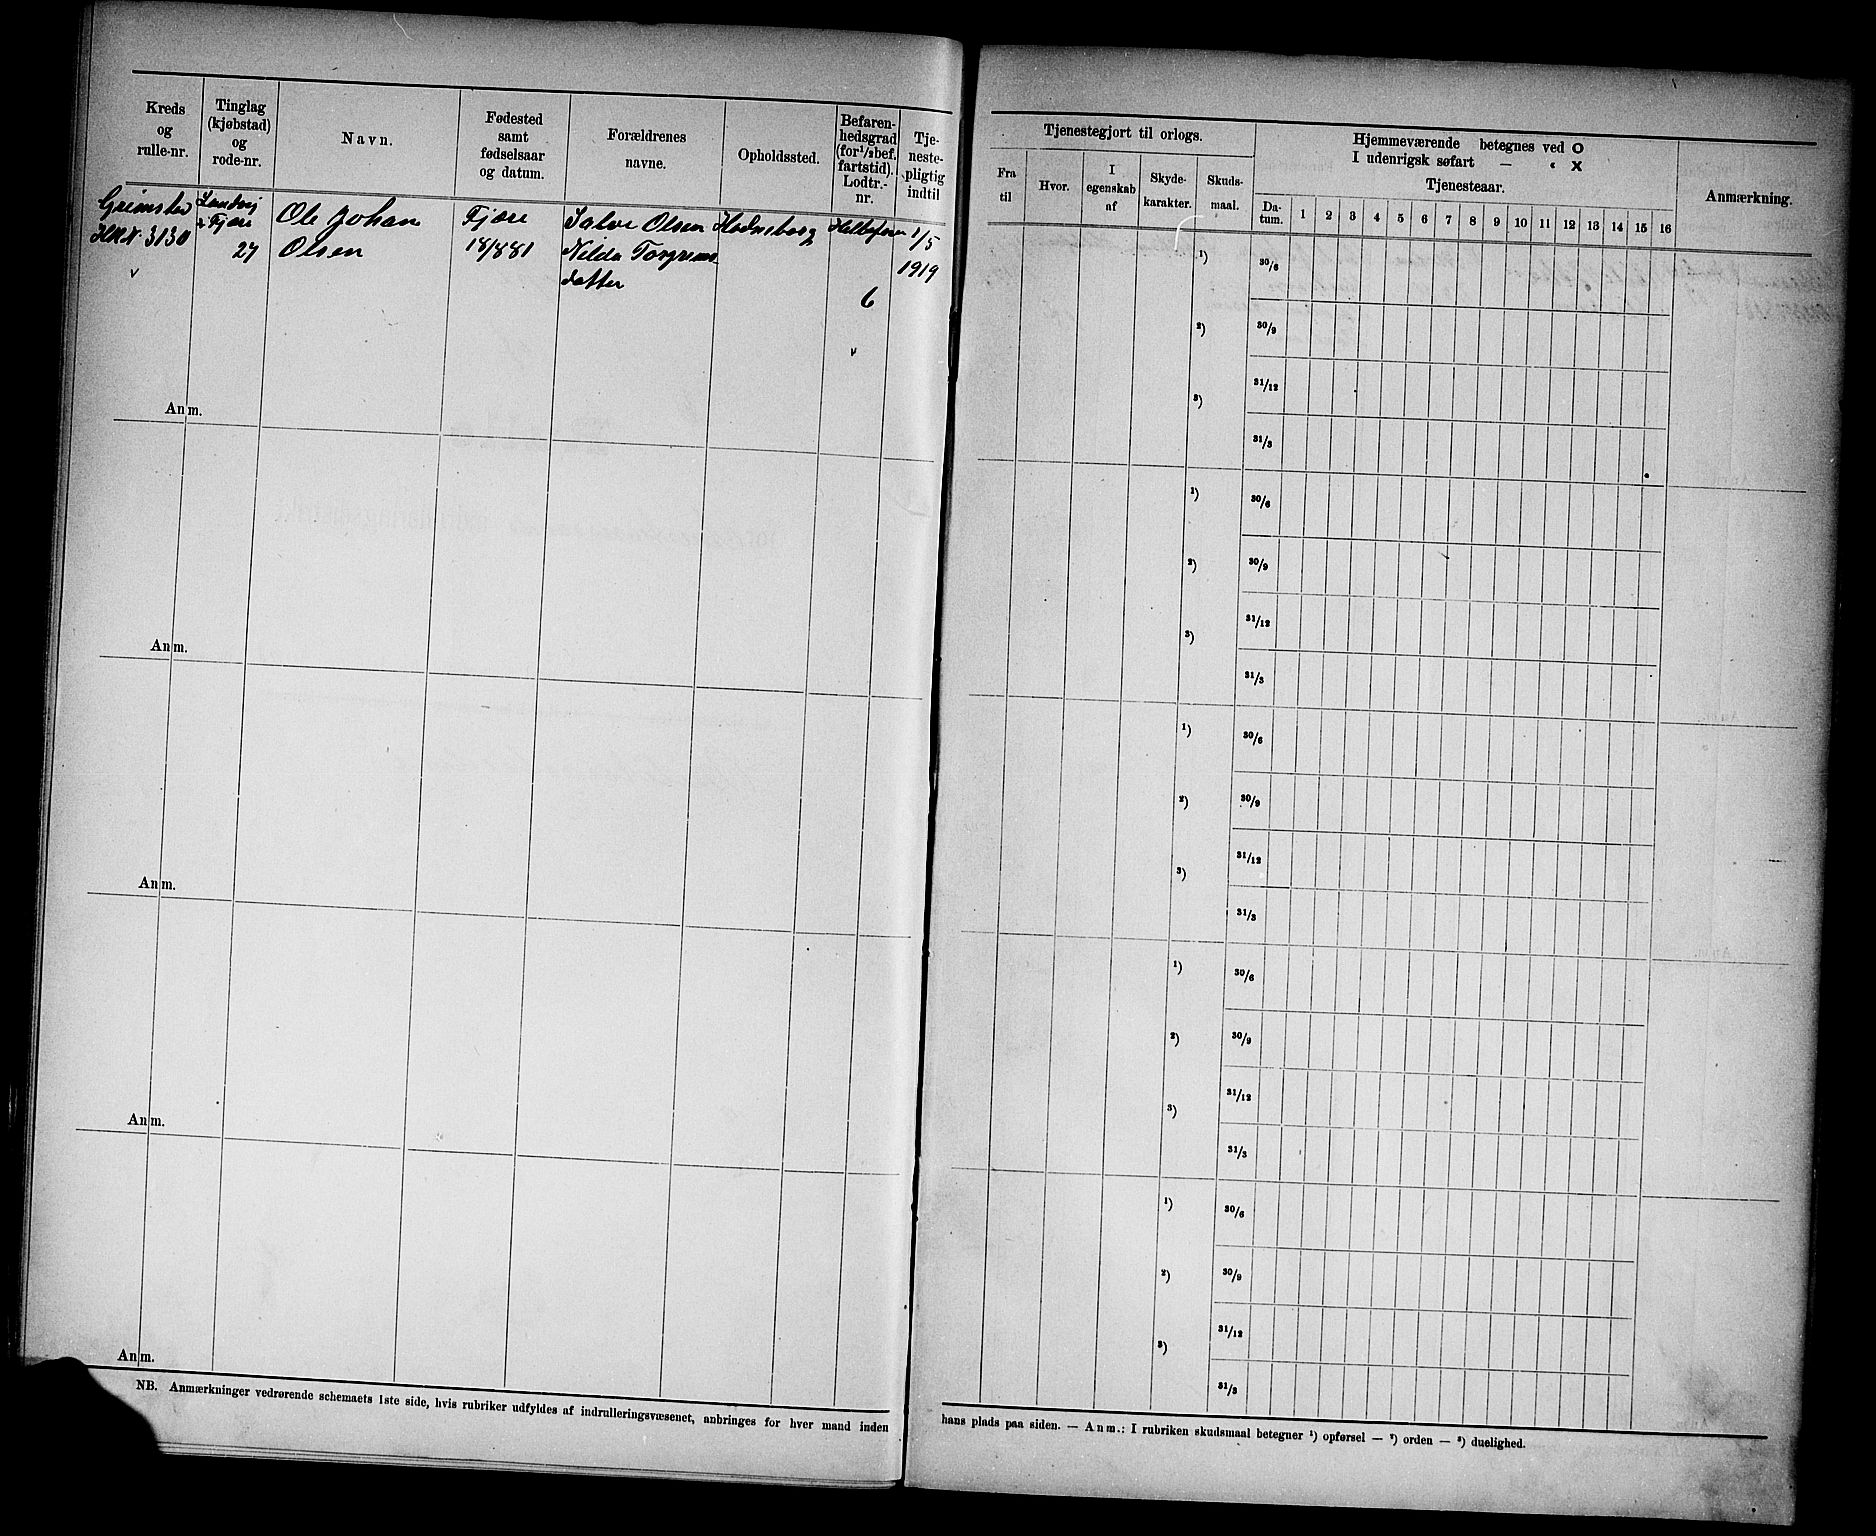 Kreds
og
rulle-nr.
Tinglag
(kjøbstad)
og
rode-nr.
Navn.
Fødested
samt
fødselsaar
og datum.
Forældrenes
navne.
Opholdssted.
Befaren-
hedsgrad
(for 1/2 bef.
fartstid).
Lodtr.-
nr.
Tje-
neste-
pligtig
indtil
Grimstad
3130
Landvig
& Fjære
27
Ole Johan
Olsen
Fjære
18/881
Salve Olsen
Torgrims-
datter
6
1/5
1919
Anm.
Anm.
Anm.
Anm.
Anm.
NB. Anmærkninger vedrørende schemaets 1ste side, hvis rubriker udfyldes af indrulleringsvæsenet, anbringes for hver mand inden
Tjenestegjort til orlogs.
Fra
til
Hvor.
I
egenskab
af
Skyde-
karakter.
Skuds-
maal.
Hjemmeværende betegnes ved O
I udenrigsk søfart — « X
Tjenesteaar.
Da-
tum.
1 2 3 4 5 6 7 8 9 10 11 12 13 14 15 16
Anmærkning.
1) 30/6
2) 30/9
3) 31/12
31/3
1) 30/6
2) 30/9
3) 31/12
31/3
1) 30/6
2) 30/9
3) 31/12
31/3
1) 30/6
2) 30/9
3) 31/12
31/3
1) 30/6
2) 30/9
3) 31/12
31/3
hans plads paa siden. — Anm.: I rubriken skudsmaal betegner 1) opførsel — 2) orden — 3) duelighed.